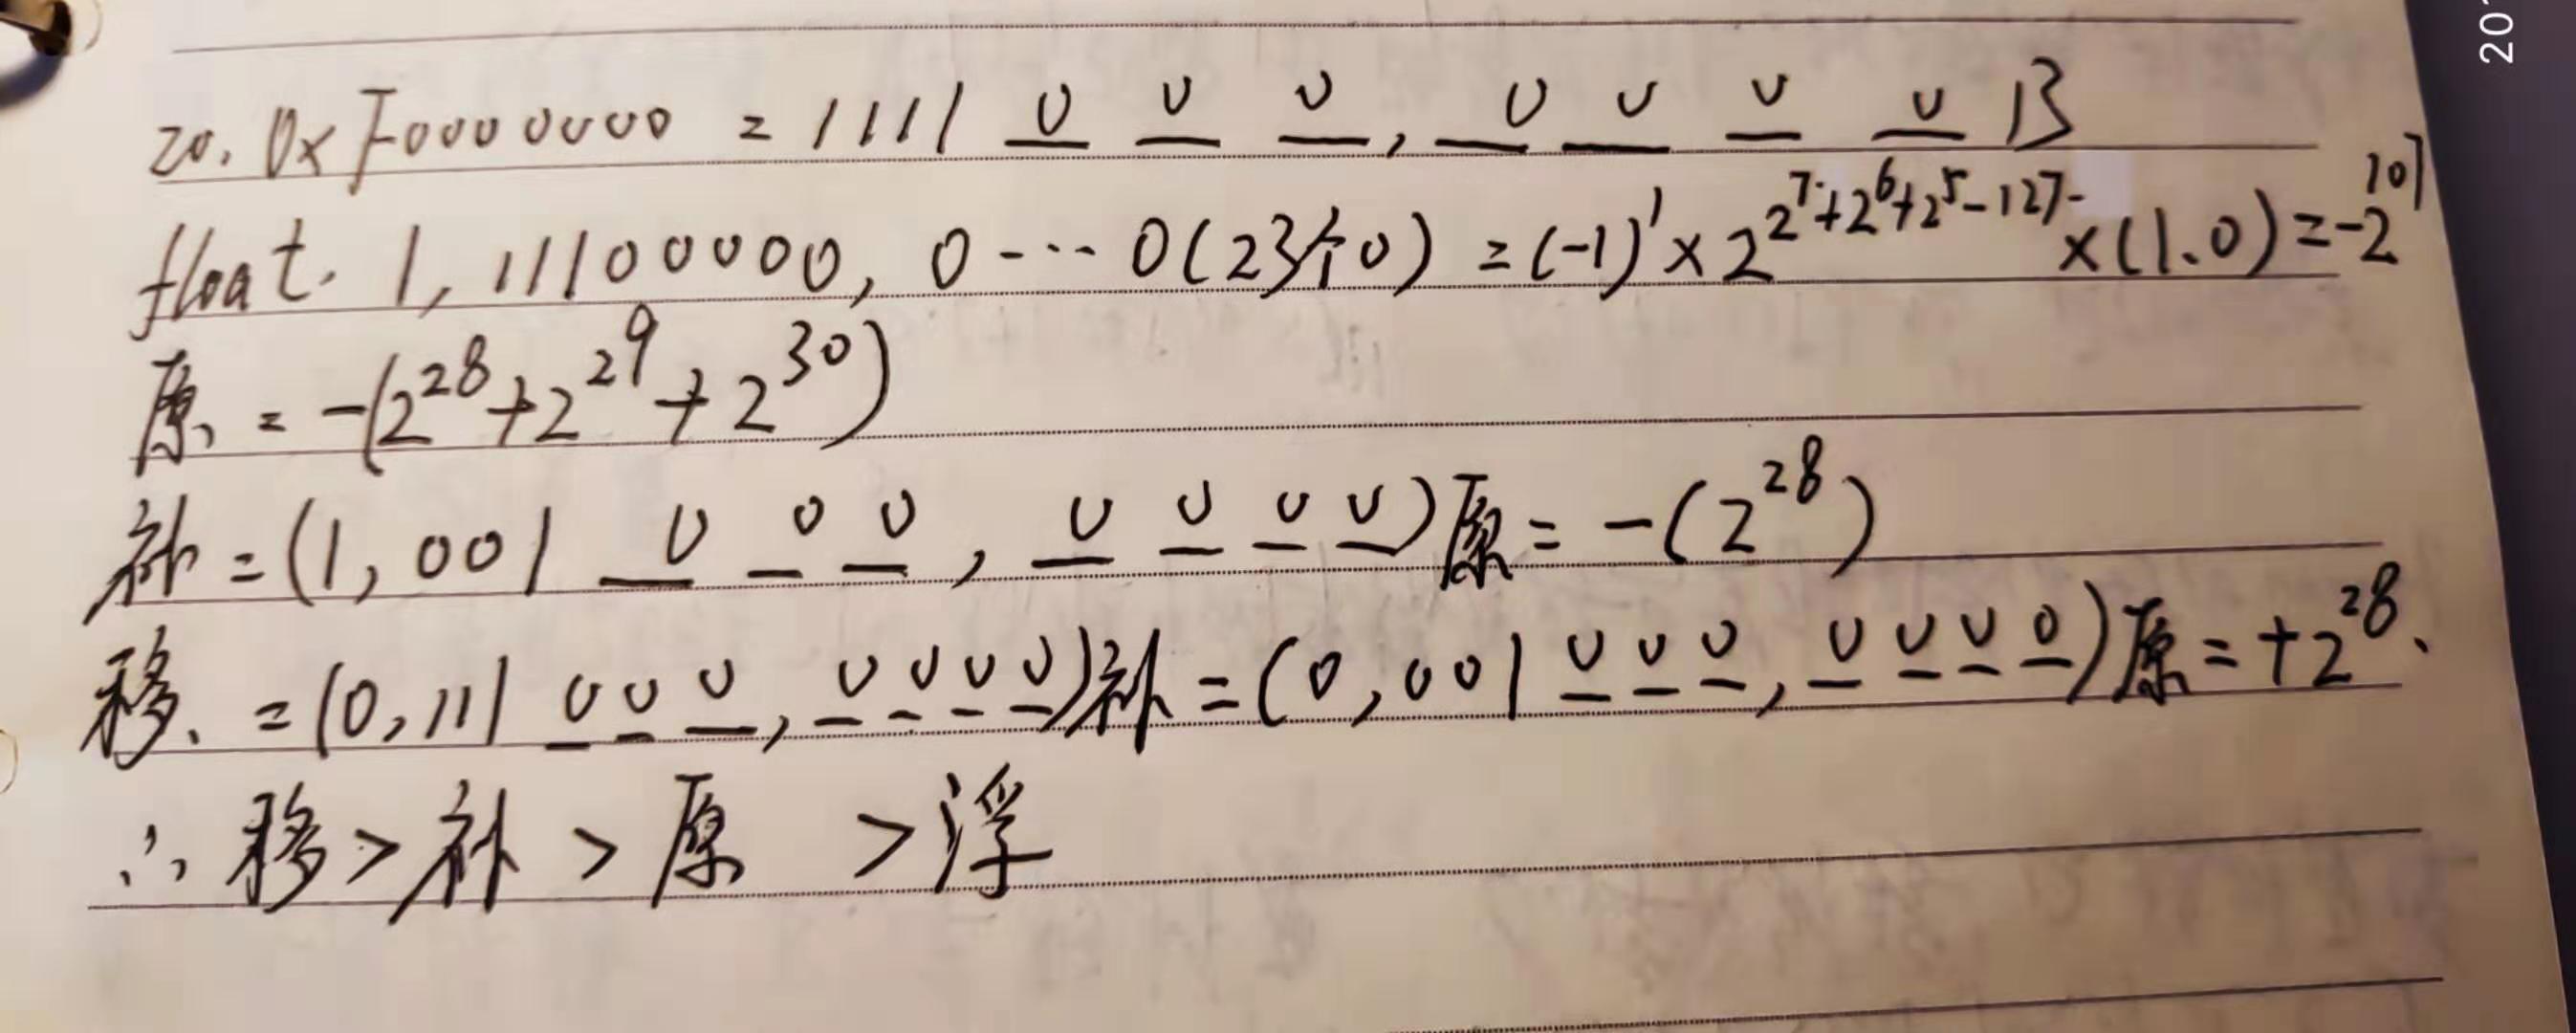 20. 0xF0000000 = 1111 0 0 0, 0 0 0 0 B
float. 1, 11100000, 0---0(23个0) = (-1)¹×2^(2^7+2^6+2^5-127)×(1.0) = -2^97
原 = -(2^28+2^29+2^30)
补 = (1, 001 0 0 0, 0 0 0 0)原 = -(2^28)
移. = (0, 111 0 0 0, 0 0 0 0)补 = (0, 001 0 0 0, 0 0 0 0)原 = +2^28.
∴ 移 > 补 > 原 > 浮
201